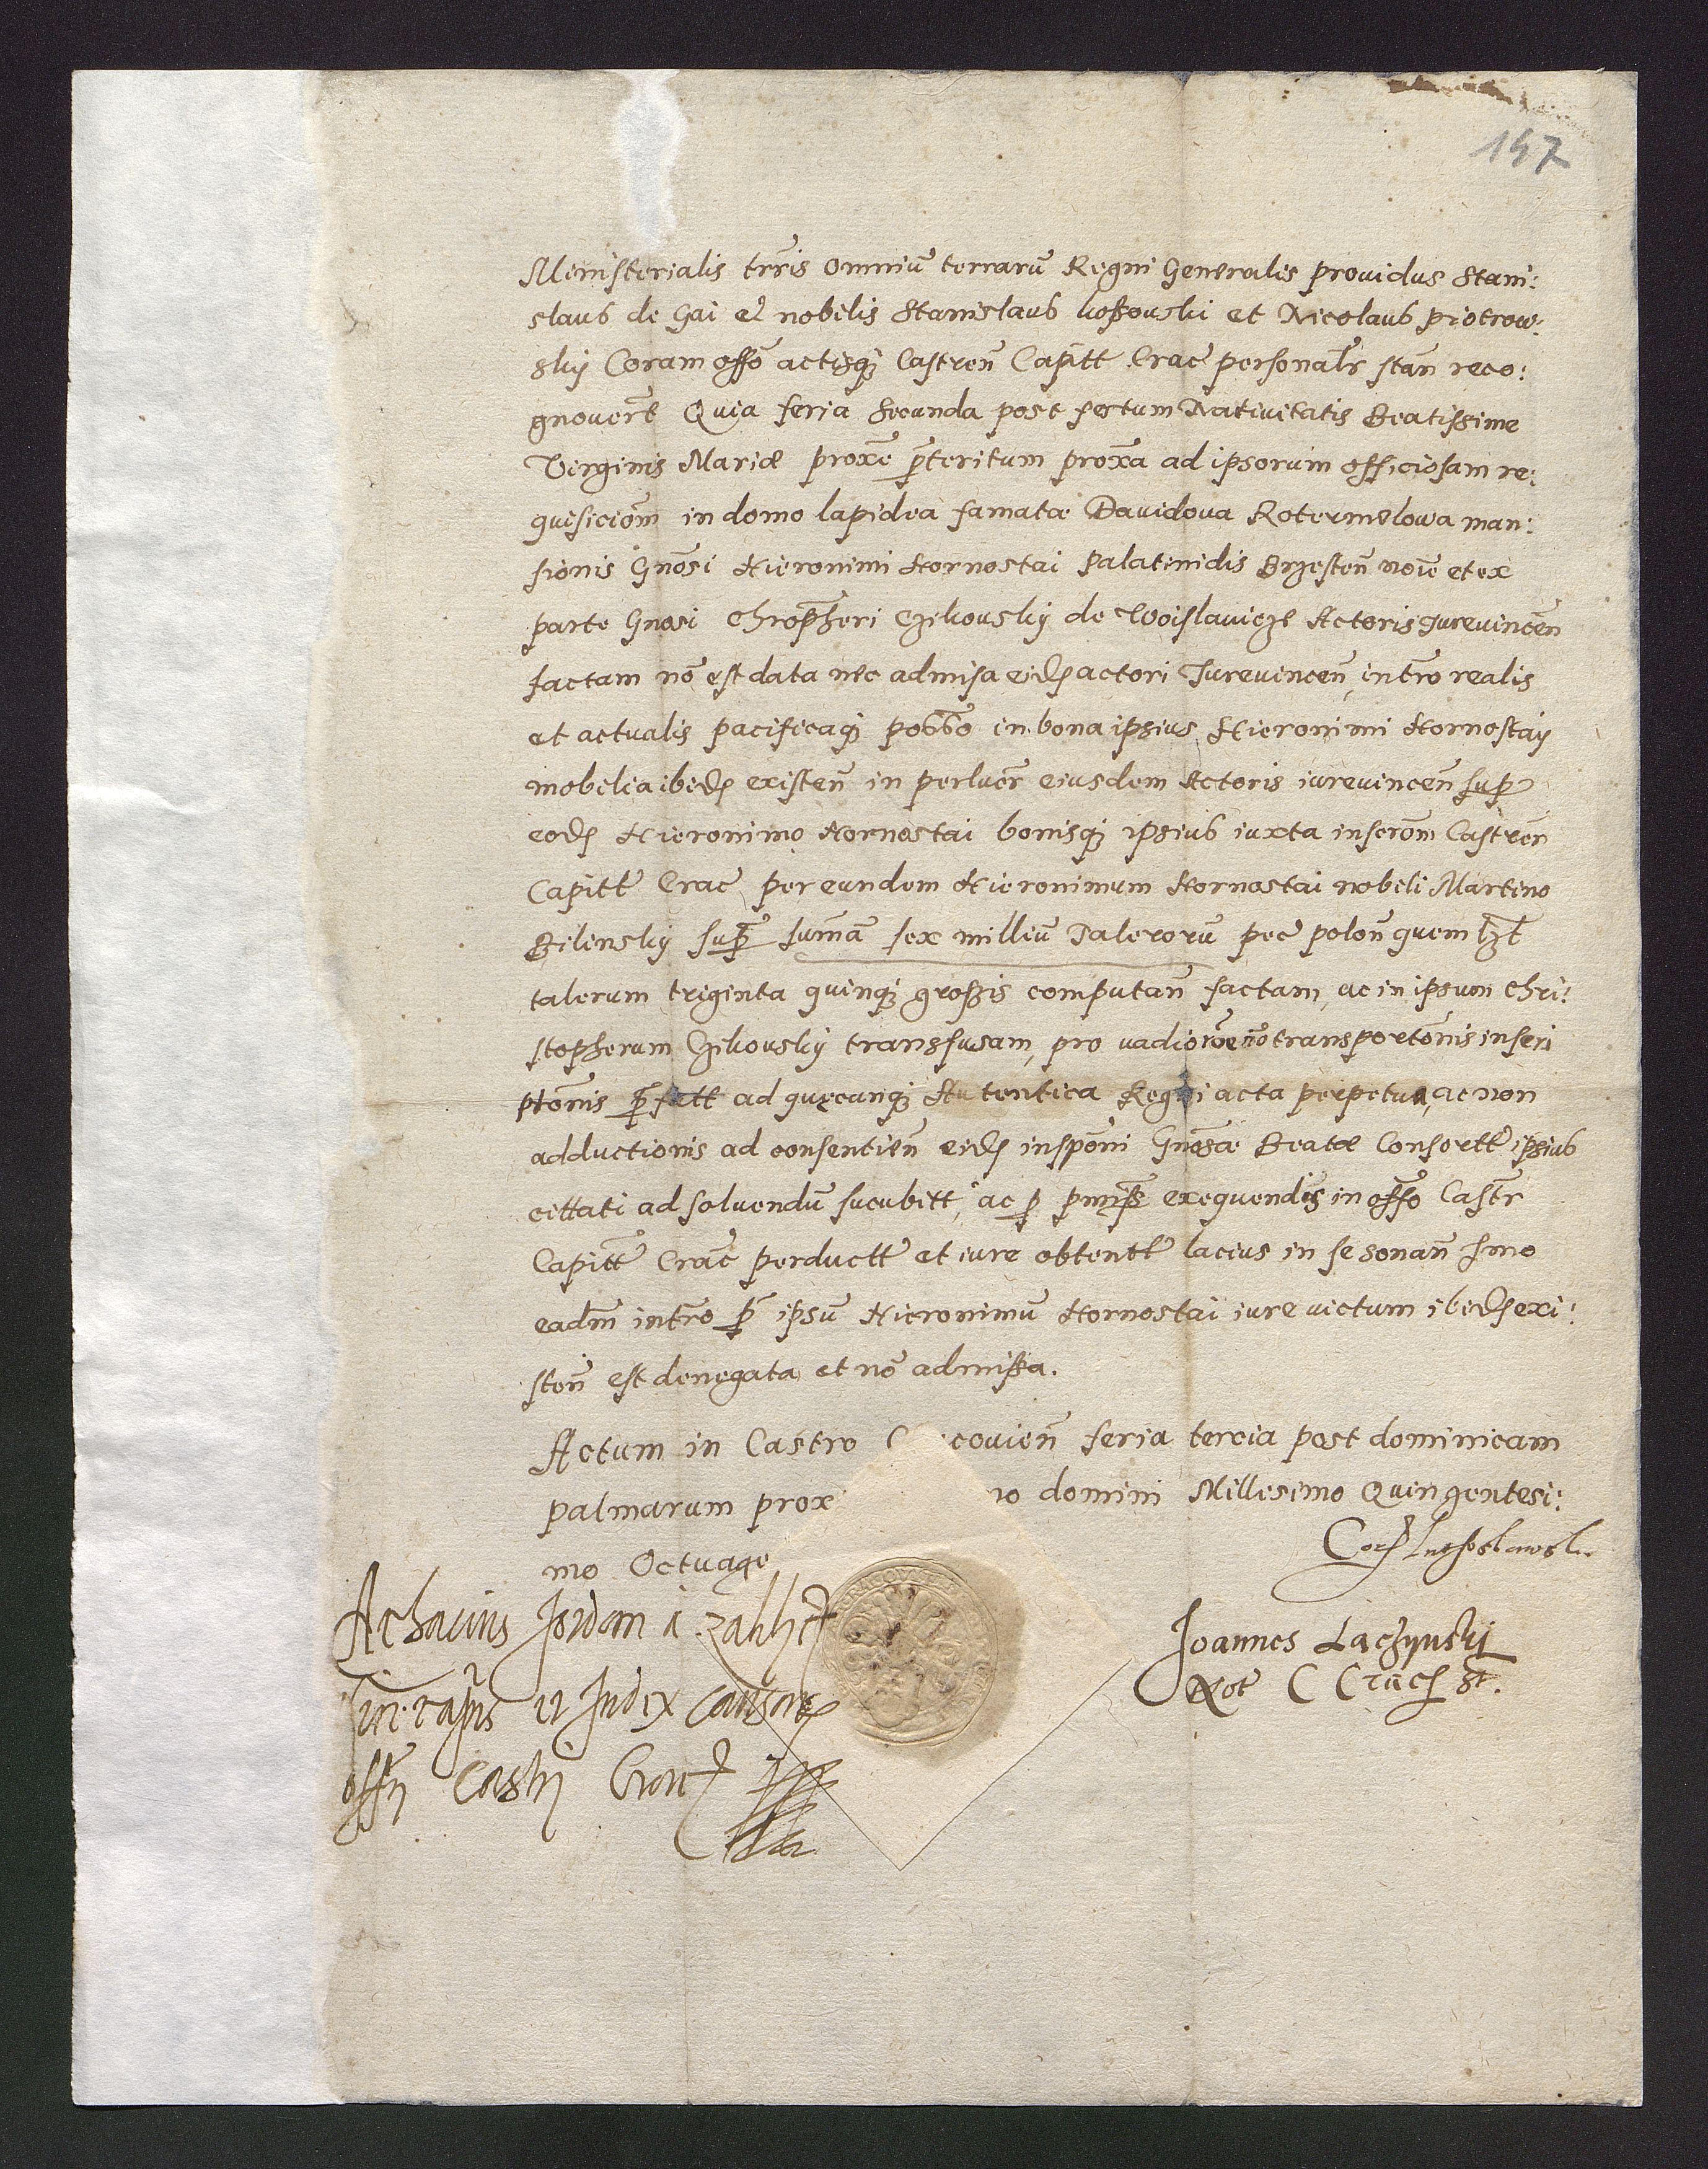 147
Ministerialis trris omniũ terrarũ Regni Generalis providus Stani:
slaus de Gai et nobilis Stanislaus koßouski et Nicolaus piotrow:
skij Coram offō actisq̃ Castreñ Capitt Crac personalr stañ reco:
gnovert Quia feria secunda post festum Nativitatis Beatissime
Virginis Mariæ proxe p̃teritum proxa ad ipsorum officiosam re:
quisiciom̃ in domo lapidea famatæ Davidova Rotermelowa man:
sionis Gnosi Hieronimi Hornostai palatinidis Brzesteñ noie et ex
parte Gnosi Chrop̃heri Czikousky de Woislavicze Actoris Jurevinceñ
factam nõ est data nec admisa eidẽ actori Jurevinceñ, intro realis
et actualis pacificaq̃ posso in bona ipsius Hieronimi Hornostaij
mobilia ibidẽ existeñ in perlucr eiusdem Actoris iurevinceñ sup
eodẽ Hieronimo Hornostai bonisq̃ ipsius iuxta inscrom̃ Castreñ
Capitt Crac per eundem Hieronimum Hornostai nobili Martino
Bilensky sup sum̃a sex milliũ Talerorũ pec poloñ quem lzt
talerum triginta quinq̃ grossis computañ factam, ac in ipsum Chri:
stopherum Czikousky transfusam, pro vadio rõe nõ transportõnis inscri
ptõnis p̃fatt ad quęcunq̃ Autentica Regni acta perpetua, ac non
adductionis ad consentieñ eidẽ inspõni Gnosæ Beatæ Consortt ipsius
cittati ad solvendũ sucubitt, ac p pmiß exequendis in offō Castr
Capitt Crac perductt et iure obtentt lacius in se sonañ Imo
eadm̃ intro p̃ ipsũ Hieronimũ Hornostai iure victum ibidẽ exi:
steñ est denegata et nõ admissa.
Actum in Castro covieñ feria tercia post dominicam
palmarum prox no domini Millesimo Quingentesi:
mo Octuage
Achacius Jordan a
et Judex
offy Castri Crac
Joannes Laczynski
Not C Crac st.